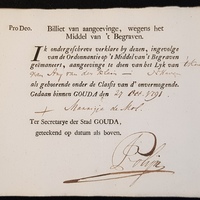 Pro Deo. Billiet van aangeevinge, wegens het
Middel van 't Begraven.
Ik ondergeschreve verklare by dezen, ingevolge
van de Ordonnantie op 't Middel van 't Begraven
geëmaneert, aangeevinge te doen van het Lyk van
van
als gehoorende onder de Classis van d' onvermogende.
Gedaan binnen GOUDA den 27 Octbr 1791
Marrigje de Mol
Ter Secretarye der Stad GOUDA,
geteekend op datum als boven,